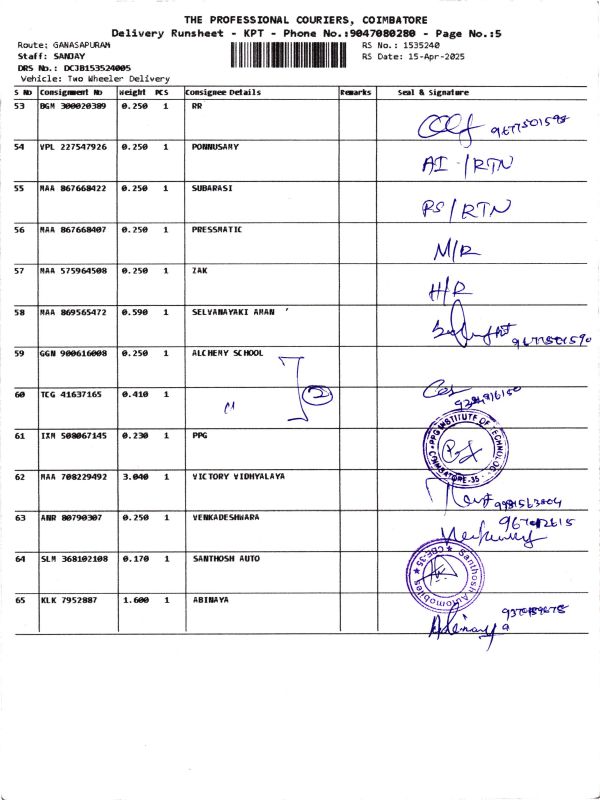 THE PROFESSIONAL COURIERS, COIMBATORE
Delivery Runsheet - KPT - Phone No.:9047080280 - Page No.:5
Route: GANASAPURAM RS No.: 1535240
Staff: SANJAY RS Date: 15-Apr-2025
DRS No.: DCJB153524005
Vehicle: Two Wheeler Delivery
S No Consignment No Weight PCS Consignee Details Remarks Seal & Signature
53 BGM 300020389 0.250 1 RR
9677501598
54 VPL 227547926 0.250 1 PONNUSAMY AI /RTN
55 MAA 867668422 0.250 1 SUBARASI RS/RTN
56 MAA 867668407 0.250 1 PRESSMATIC M/R
57 MAA 575964508 0.250 1 ZAK H/R
58 MAA 869565472 0.590 1 SELVANAYAKI AMAN
9677501590
59 GGN 900616008 0.250 1 ALCHEMY SCHOOL
60 TCG 41637165 0.410 1 " 2
61 IXM 508067145 0.230 1 PPG PPG INSTITUTE OF TECHNOLOGY COIMBATORE-35
62 MAA 708229492 3.040 1 VICTORY VIDHYALAYA
63 ANR 80790307 0.250 1 VENKADESHWARA
64 SLM 368102108 0.170 1 SANTHOSH AUTO Santhosh Automobiles CBE-35
65 KLK 7952887 1.600 1 ABINAYA Abinaya